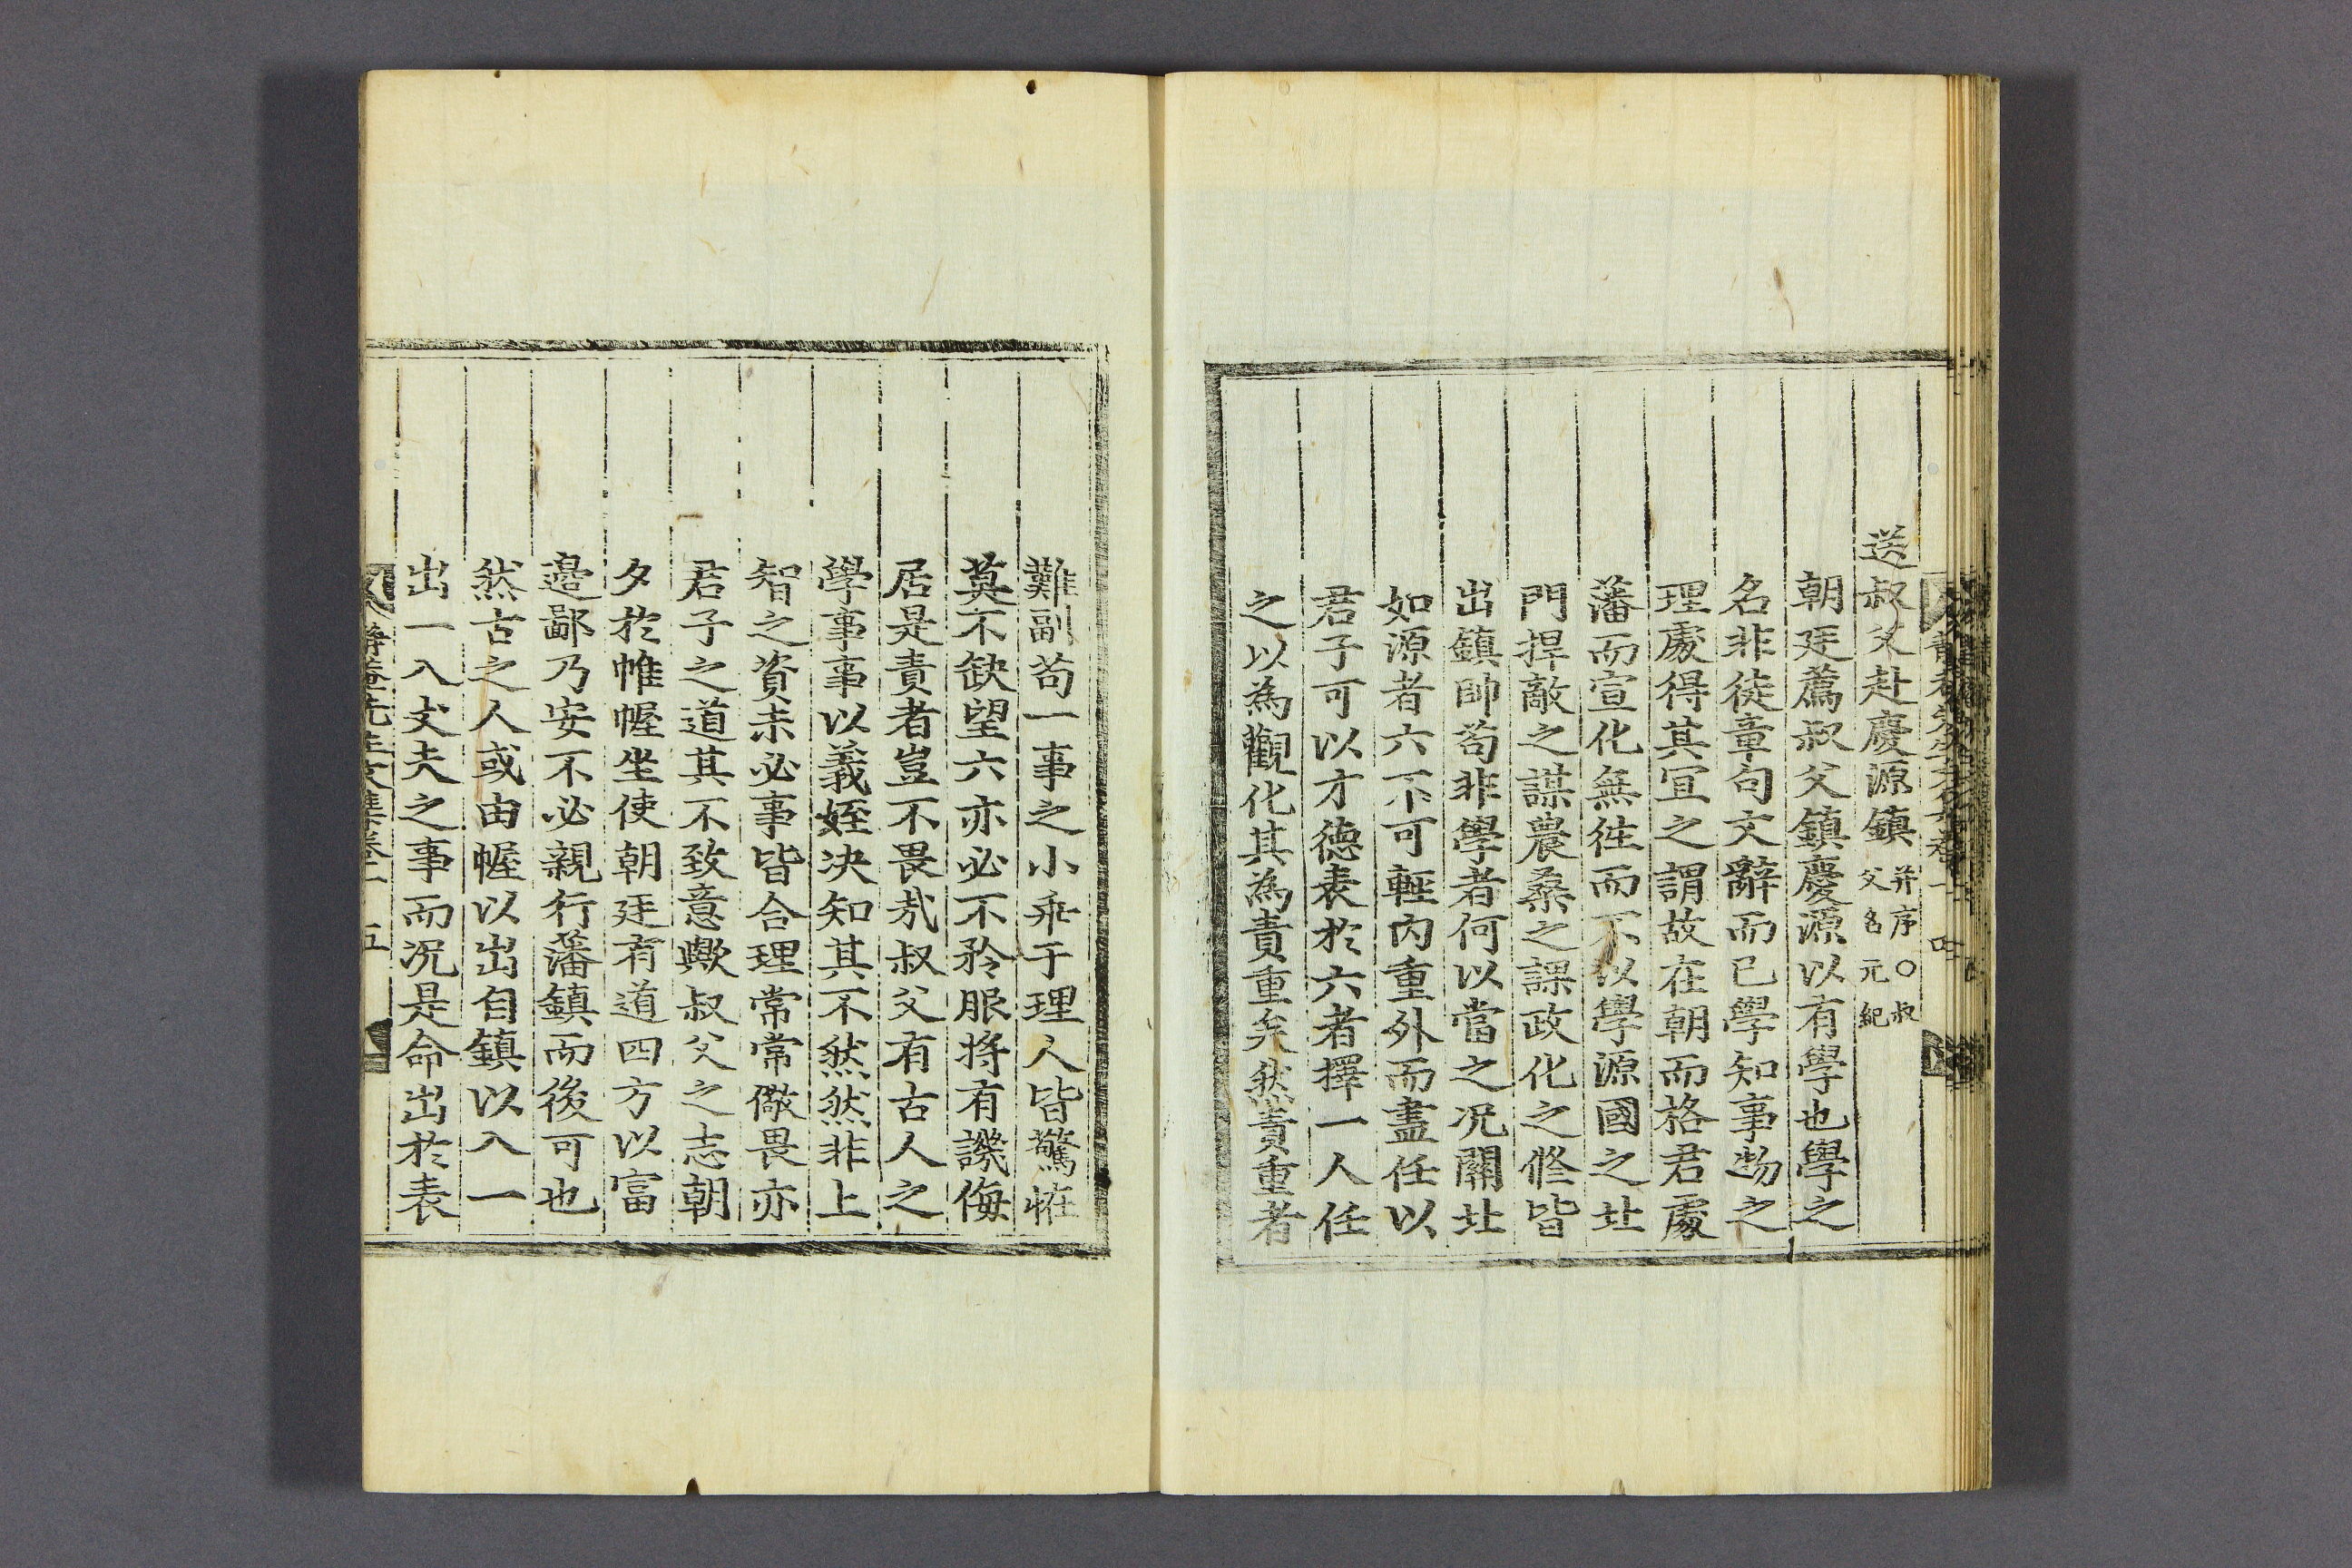 送叔父赴慶源鎮 并序○叔父名元紀
朝廷薦叔父鎮慶源以有學也學之
名非徒章句文辭而已學知事物之
理處得其宜之謂故在朝而格君處
藩而宣化無徃而不以學源國之北
門捍敵之謀農桑之課政化之修皆
出鎮帥苟非學者何以當之况關北
如源者六不可輕內重外而盡任以
君子可以才德表於六者擇一人任
之以為觀化其為責重矣然責重者
難副苟一事之小乖于理人皆驚恠
莫不缺望六亦必不矜服將有譏侮
居是責者豈不畏㢤叔父有古人之
學事事以義姪决知其不然然非上
智之資未必事皆合理常常儆畏亦
君子之道其不致意歟叔父之志朝
夕於帷幄坐使朝廷有道四方以富
邉鄙乃安不必親行藩鎮而後可也
然古之人或由幄以出自鎮以入一
出一入丈夫之事而况是命出於表
靜菴先生文集卷二 五